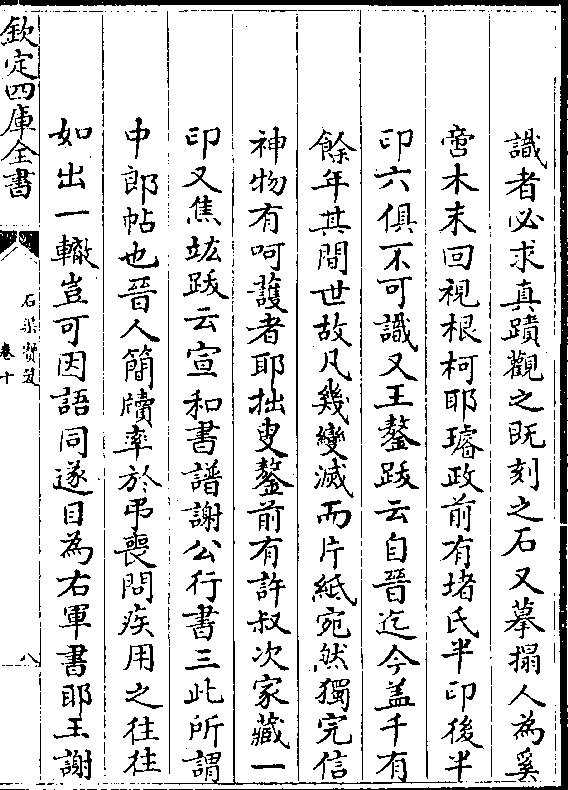 識者必求真蹟觀之既刻之石又摹搨人為奚
啻木末回視根柯耶璿政前有堵氏半印後半
印六俱不可識又王鏊跋云自晉迄今盖千有
餘年其間世故凡幾變滅而片紙宛然獨完信
神物有呵護者耶拙叟鏊前有許叔次家藏一
印又焦竑跋云宣和書譜謝公行書三此所謂
中郎帖也晉人簡牘率於弔喪問疾用之往往
如出一轍豈可因語同遂目為右軍書耶王謝
欽定四庫全書
石渠寶笈
卷十
八